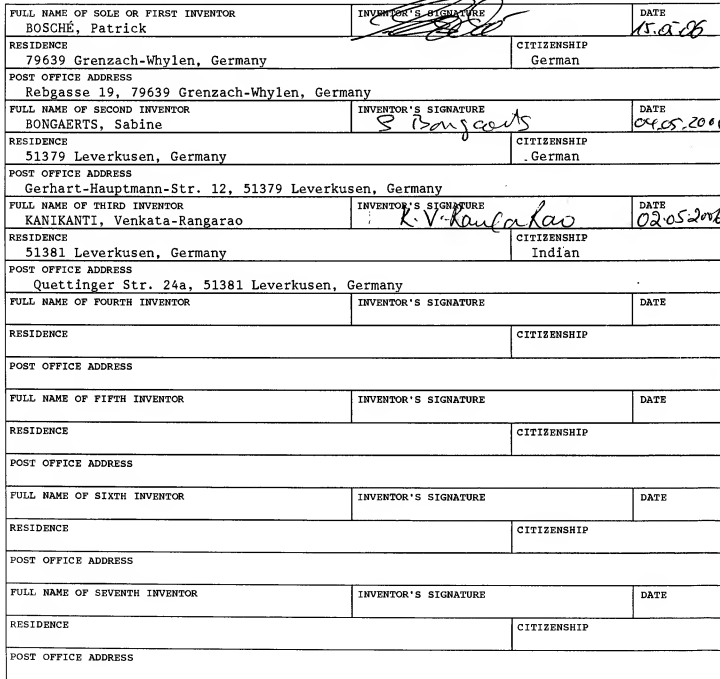 FULL NAME OF SOLE OR FIRST INVENTOR INVENTOR'S SIGNATURE DATE
BOSCHÉ, Patrick
RESIDENCE CITIZENSHIP
79639 Grenzach-Whylen, Germany German
POST OFFICE ADDRESS
Rebgasse 19, 79639 Grenzach-Whylen, Germany
FULL NAME OF SECOND INVENTOR INVENTOR'S SIGNATURE DATE
BONGAERTS, Sabine S Bongaerts 04.05.200
RESIDENCE CITIZENSHIP
51379 Leverkusen, Germany .German
POST OFFICE ADDRESS
Gerhart-Hauptmann-Str. 12, 51379 Leverkusen, Germany
FULL NAME OF THIRD INVENTOR INVENTOR'S SIGNATURE DATE
KANIKANTI, Venkata-Rangarao K.V. Ranga Rao 02.05.2006
RESIDENCE CITIZENSHIP
51381 Leverkusen, Germany Indian
POST OFFICE ADDRESS
Quettinger Str. 24a, 51381 Leverkusen, Germany
FULL NAME OF FOURTH INVENTOR INVENTOR'S SIGNATURE DATE
RESIDENCE CITIZENSHIP
POST OFFICE ADDRESS
FULL NAME OF FIFTH INVENTOR INVENTOR'S SIGNATURE DATE
RESIDENCE CITIZENSHIP
POST OFFICE ADDRESS
FULL NAME OF SIXTH INVENTOR INVENTOR'S SIGNATURE DATE
RESIDENCE CITIZENSHIP
POST OFFICE ADDRESS
FULL NAME OF SEVENTH INVENTOR INVENTOR'S SIGNATURE DATE
RESIDENCE CITIZENSHIP
POST OFFICE ADDRESS